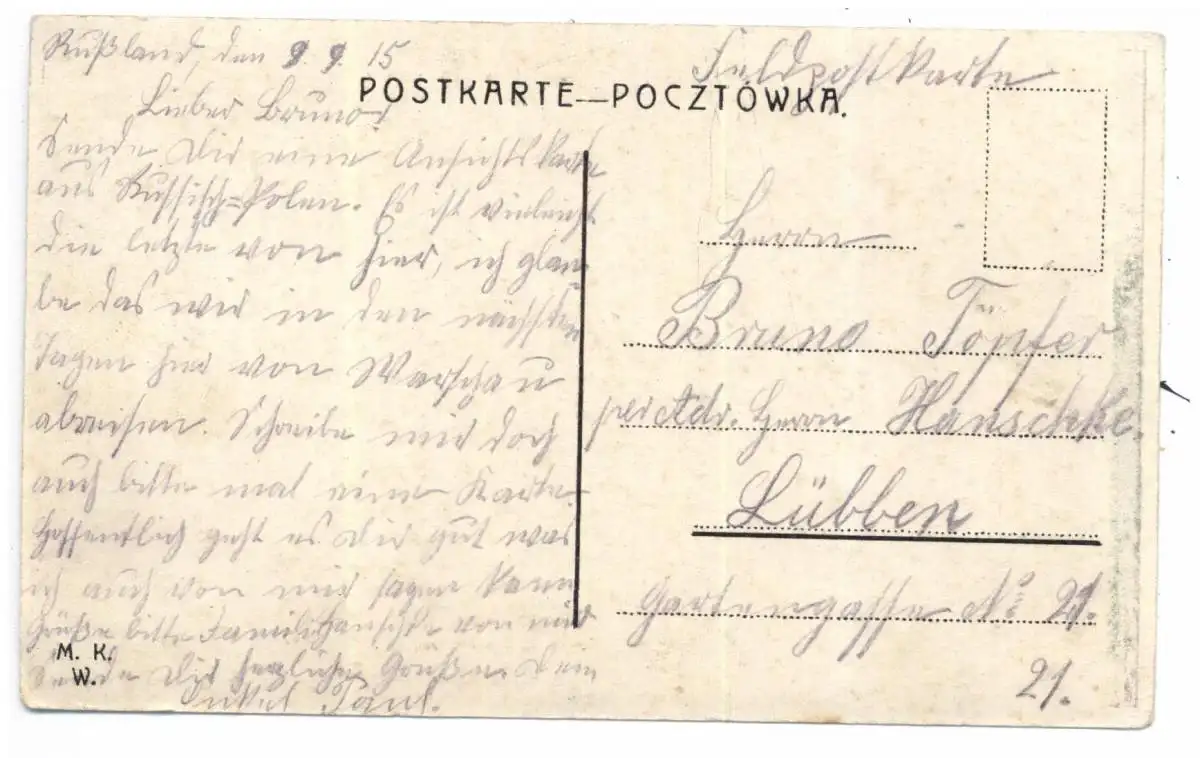 Rußland, den 9. 9. 15
Feldpostkarte
POSTKARTE—POCZTÓWKA.
Lieber Bruno!
Sende Dir eine Ansichtskarte
aus Russisch=Polen. Es ist vieleicht
die letzte von hier, ich glau
be das wir in den nächsten
Tagen hier von Warschau
abreisen. Schreibe mir doch
auch bitte mal eine Karte
Hoffentlich geht es Dir gut was
ich auch von mir sagen kann
Grüße bitte Famili von mir
Sende Dir herzliche Grüße Dein
Onkel Paul.
M. K.
W.
Herrn
Bruno Töpfer
per Adr. Herrn Hanschke.
Lübben
Gartengasse No 21.
21.